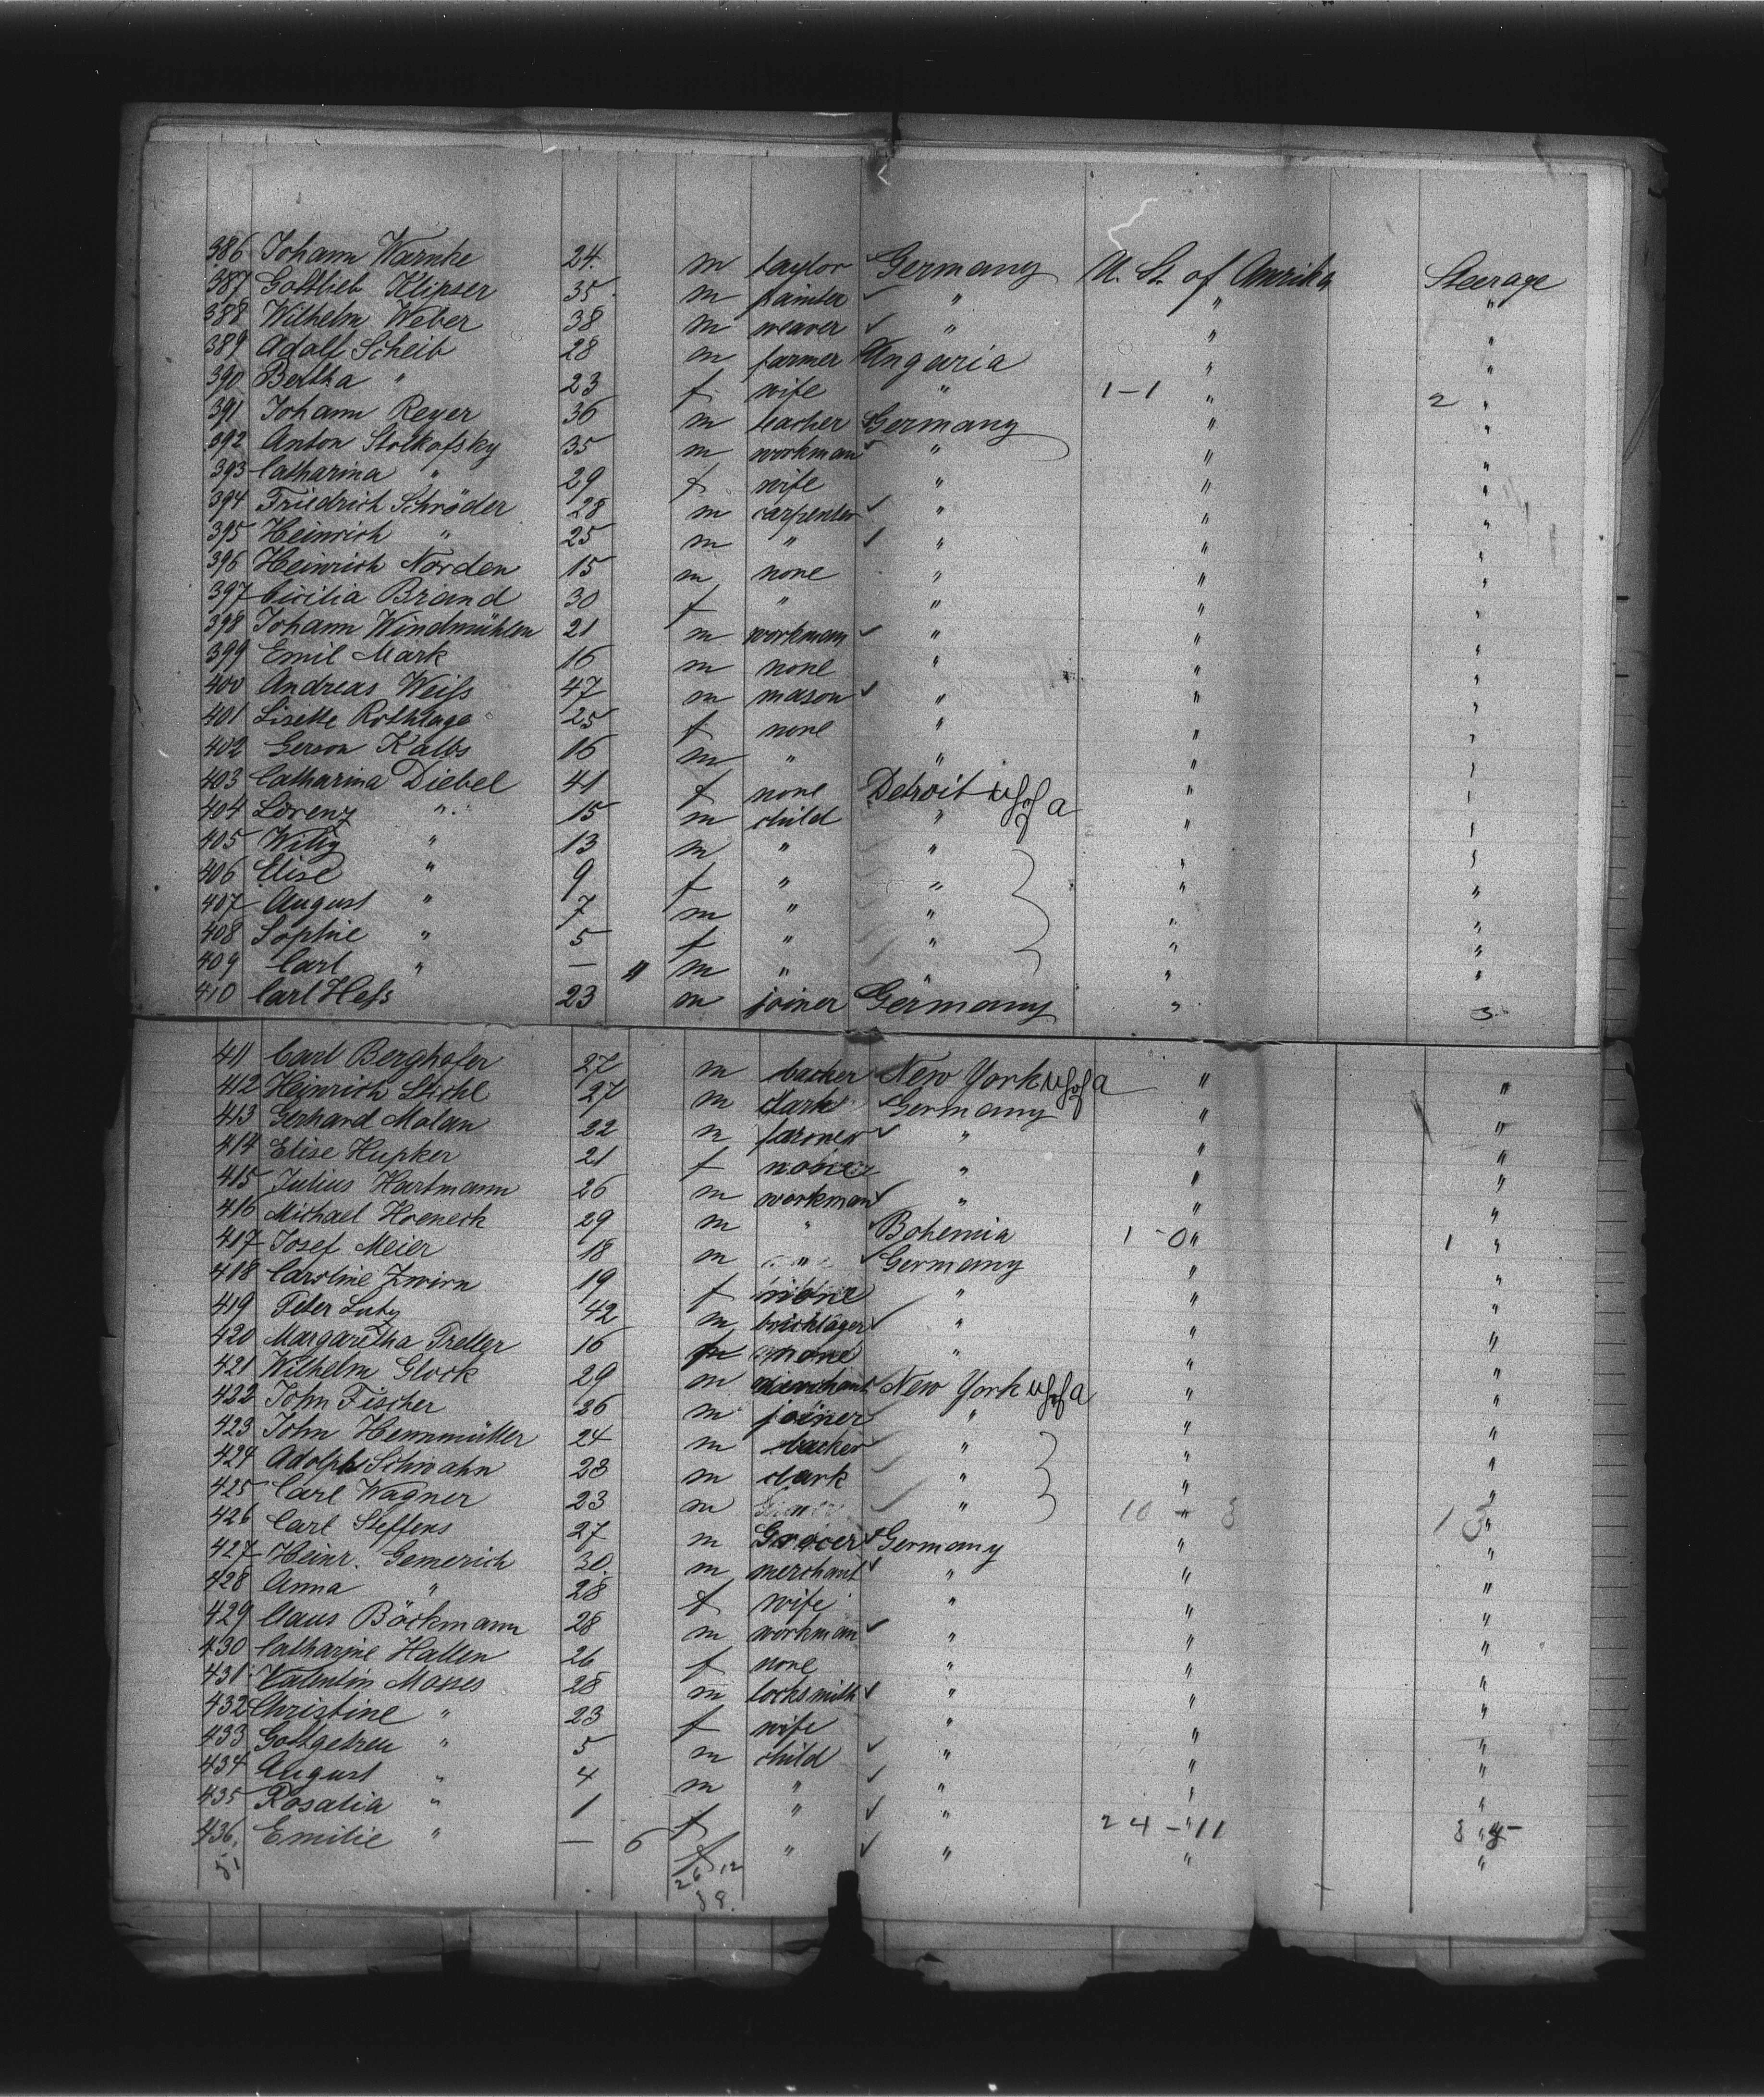 386 Johann Warnke 24. m taylor Germany U. St. of Amrika Steerage
387 Gottlieb Klipser 35 m painter " " "
388 Wilhelm Weber 38 m weaver " " "
389 Adolf Scheib 28 m farmer Ungaria " "
390 Bertha " 23 f wife " 1-1 " 2 "
391 Johann Reyer 36 m teacher Germany " "
392 Anton Stolkofsky 35 m workman " " "
393 Catharina " 29 f wife " " "
394 Friedrich Schröder 28 m carpenter " " "
395 Heinrich " 25 m " " " "
396 Heinrich Norden 15 m none " " "
397 Cicilia Brand 30 f " " " "
398 Johann Windmühlen 21 m workman " " "
399 Emil Mark 16 m none " " "
400 Andreas Weifs 47 m mason " " "
401 Lisette Rothlage 25 f none " " "
402 Gerson Kalbs 16 m " " " "
403 Catharina Diebel 41 f none Detroit U S of a " "
404 Lorenz " 15 m child " " "
405 Willy " 13 m " " " "
406 Elise " 9 f " " " "
407 August " 7 m " " " "
408 Sophie " 5 f " " " "
409 Carl " — " m " " " "
410 Carl Hefs 23 m joiner Germany " 3
411 Carl Berghofer 27 m backer New York U S of a " "
412 Heinrich Stichl 27 m clark Germany " "
413 Gerhard Malan 22 m farmer " " "
414 Elise Hupker 21 f none " " "
415 Julius Hartmann 26 m workman " " "
416 Michael Hoeneck 29 m " Bohemia 1 - 0 " 1 "
417 Josef Meier 18 m " Germany " "
418 Caroline Zwirn 19 f none " " "
419 Peter Lutz 42 m bricklager " " "
420 Margaretha Treller 16 f none " " "
421 Wilhelm Glock 29 m merchant New York U S of a " "
422 John Fischer 26 m joiner " " "
423 John Hemmüller 24 m backer " " "
424 Adolph Schwahn 23 m clark " " "
425 Carl Wagner 23 m " 10 - 3 " 13 "
426 Carl Steffens 27 m Grocer Germany " "
427 Heinr. Gemerich 30. m merchant " " "
428 Anna " 28 f wife " " "
429 Claus Böckmann 28 m workman " " "
430 Catharine Hallen 26 f none " " "
431 Valentin Mosses 28 m locksmith " " "
432 Christine " 23 f wife " " "
433 Gottgetreu " 5 m child " " "
434 August " 4 m " " " "
435 Rosalia " 1 f " " 24 - 11 " "
436. Emilie " — 6 f " " " "
51 26 12
38.